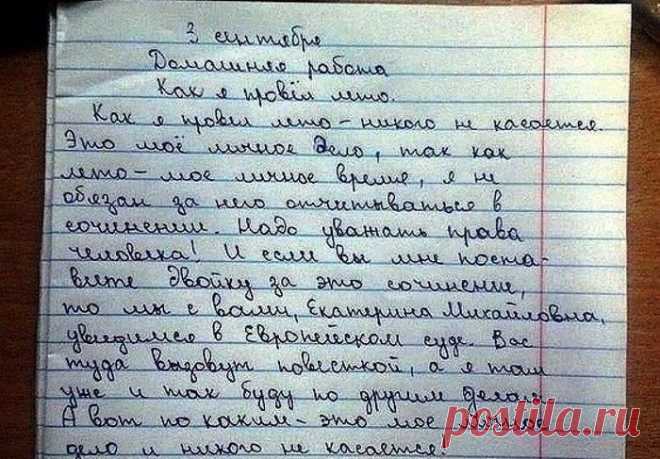 3 сентября
Домашняя работа
Как я провёл лето.
Как я провел лето – никого не касается.
Это моё личное дело, так как
лето – мое личное время, я не
обязан за него отчитываться в
сочинении. Надо уважать права
человека! И если вы мне поста-
вите двойку за это сочинение,
то мы с вами, Екатерина Михайловна,
увидимся в Европейском суде. Вас
туда вызовут повесткой, а я там
уже и так буду по другим делам.
А вот по каким – это мое личное
дело и никого не касается!
postila.ru